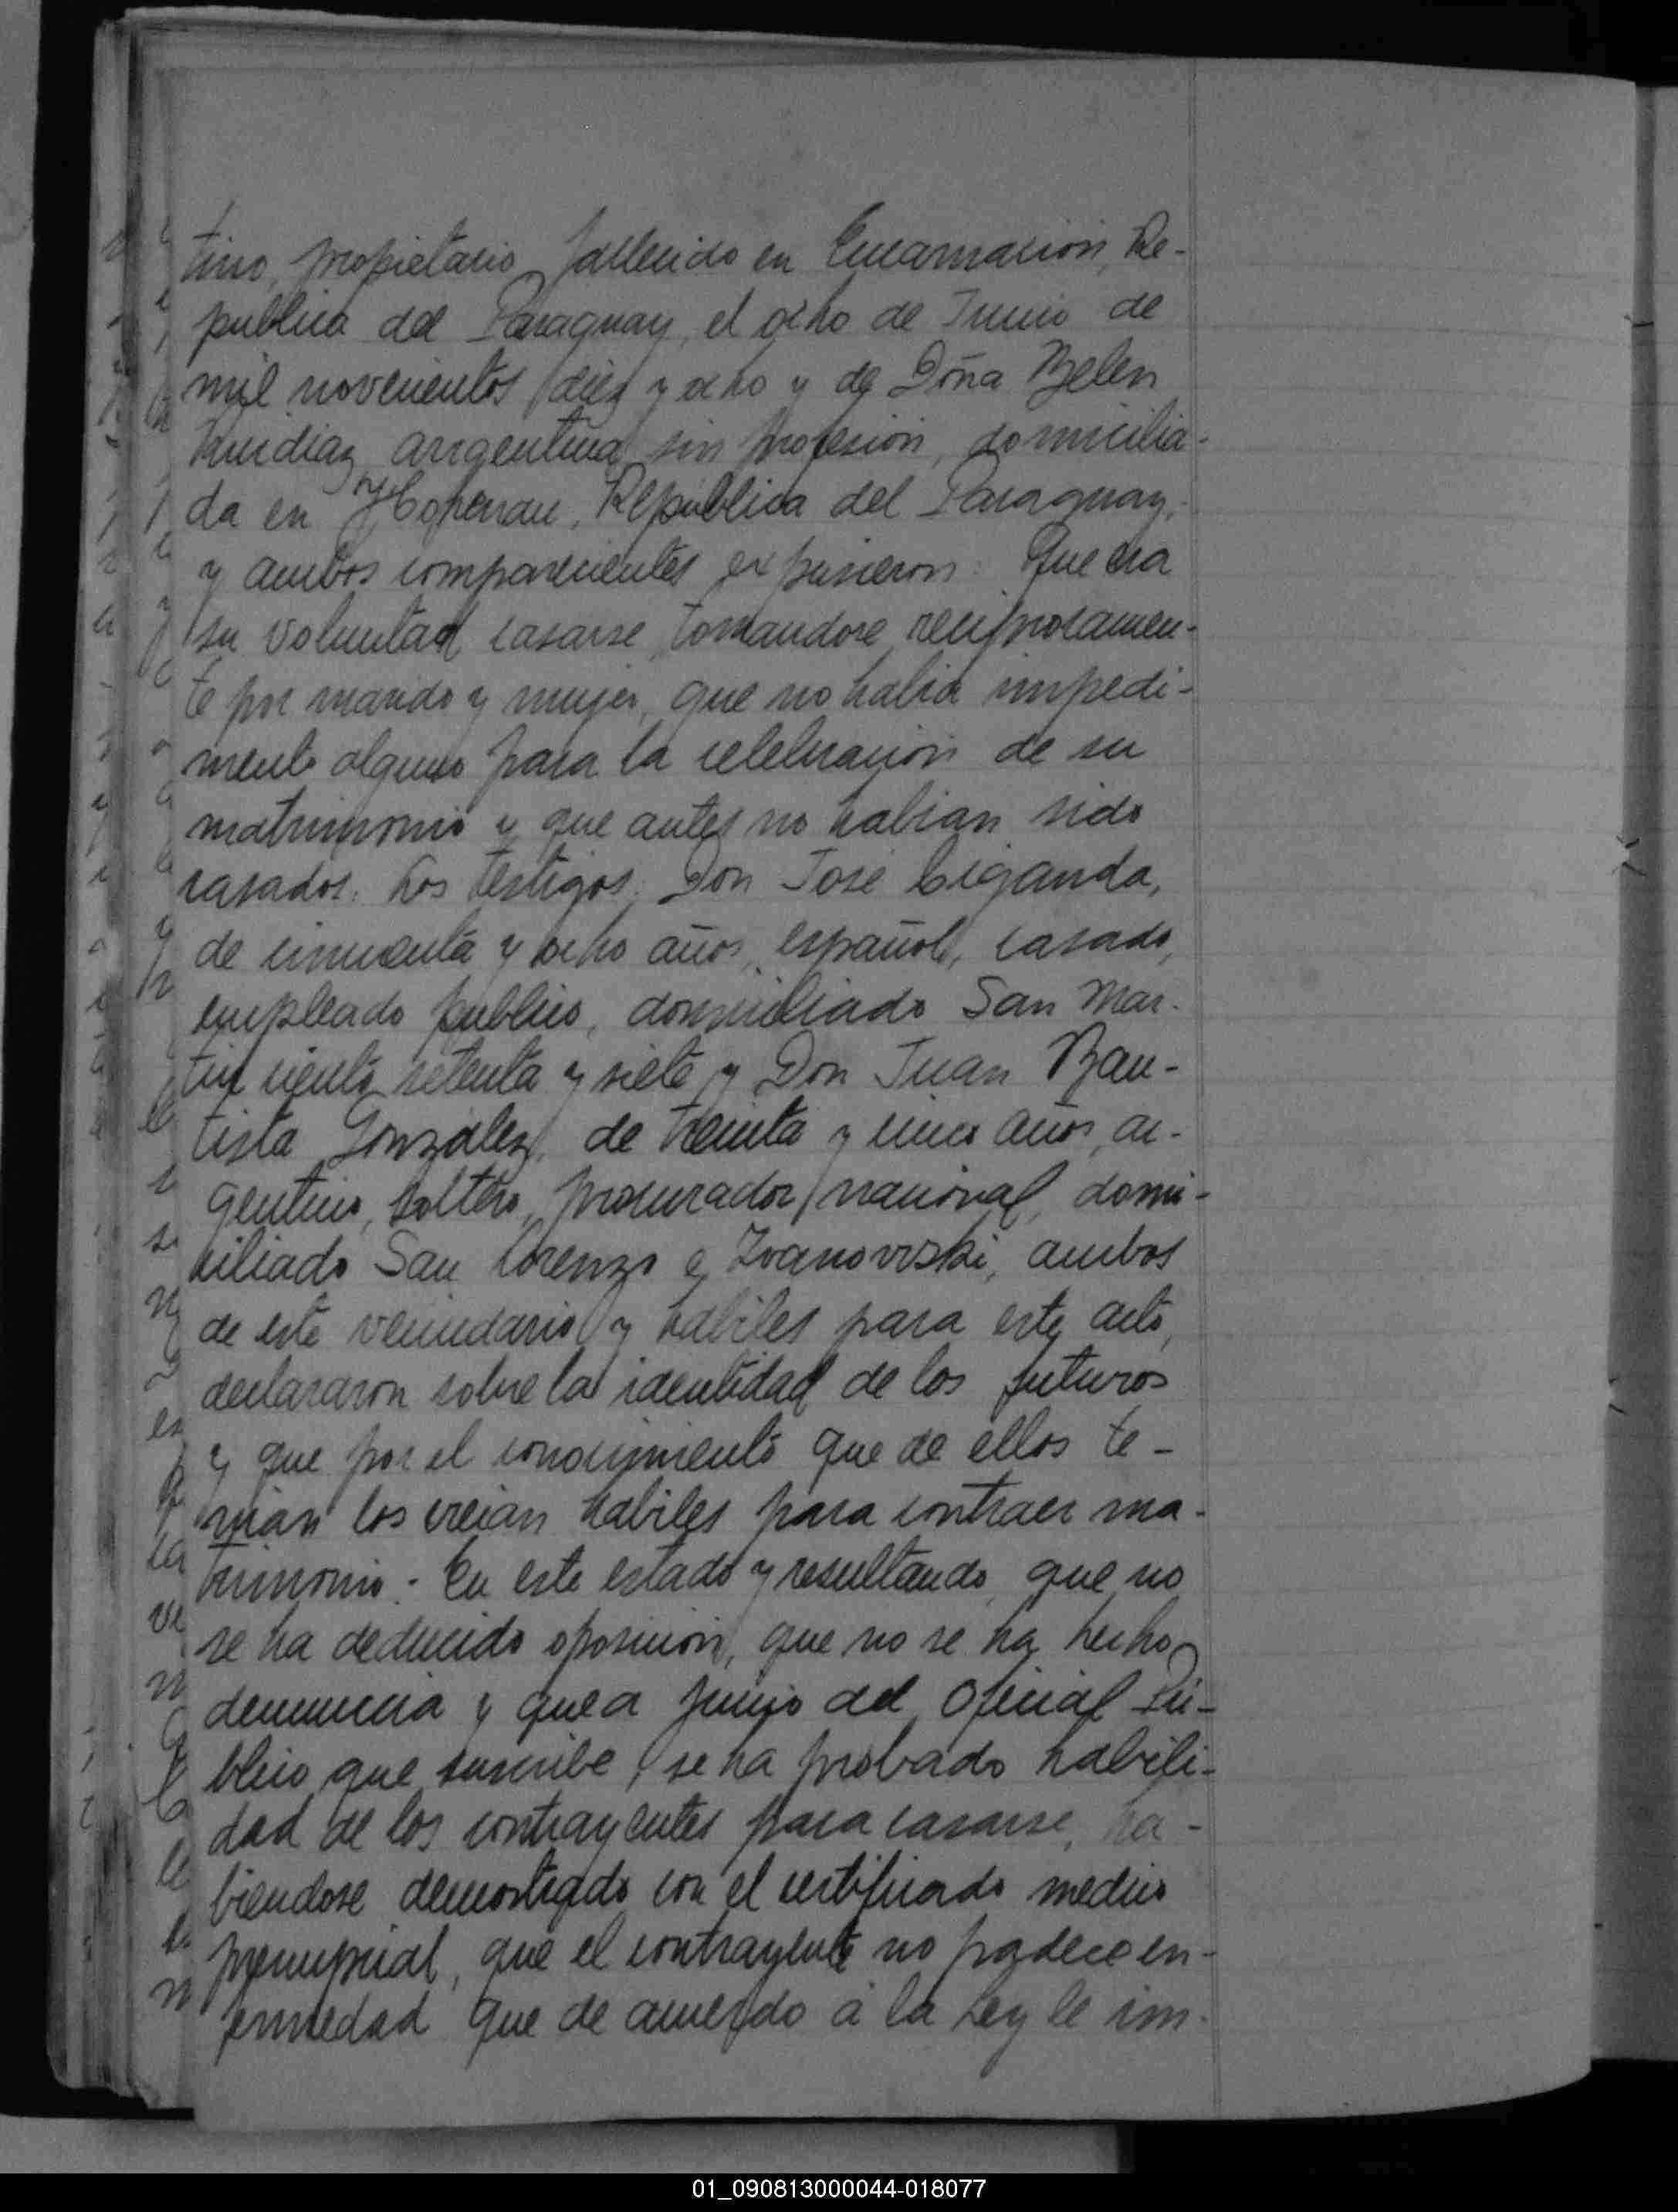 tino, propietario, fallecido en Encarnación, Re-
publica del Paraguay, el ocho de Junio de
mil novecientos diez y ocho y de Doña Belen
Ruidiaz, argentina, sin profesion, domicilia-
da en Hohenau, República del Paraguay,
y ambos comparecientes expusieron: Que era
su voluntad casarse, tomandose reciprocamen-
te por marido y mujer, que no habia impedi-
mento alguno para la celebracion de su
matrimonio y que antes no habian sido
casados. Los testigos: Don José Ciganda,
de cincuenta y ocho años, español, casado,
empleado publico, domiciliado San Mar-
tin ciento setenta y siete y Don Juan Bau-
tista González, de treinta y cinco años, ar-
gentino, soltero, procurador nacional, domi-
ciliado San Lorenzo e Ivanovski, ambos
de este vecindario y habiles para este acto,
declararon sobre la identidad de los futuros
y que por el conocimiento que de ellos te-
nian los creian habiles para contraer ma-
trimonio. En este estado y resultando, que no
se ha deducido oposicion, que no se ha hecho
denuncia y que a juicio del Oficial Pú-
blico que suscribe, se ha probado habili-
dad de los contrayentes para casarse, ha-
biendose demostrado con el certificado medico
prenupcial, que el contrayente no padece en-
fermedad que de acuerdo á la Ley le im-
01_090813000044-018077